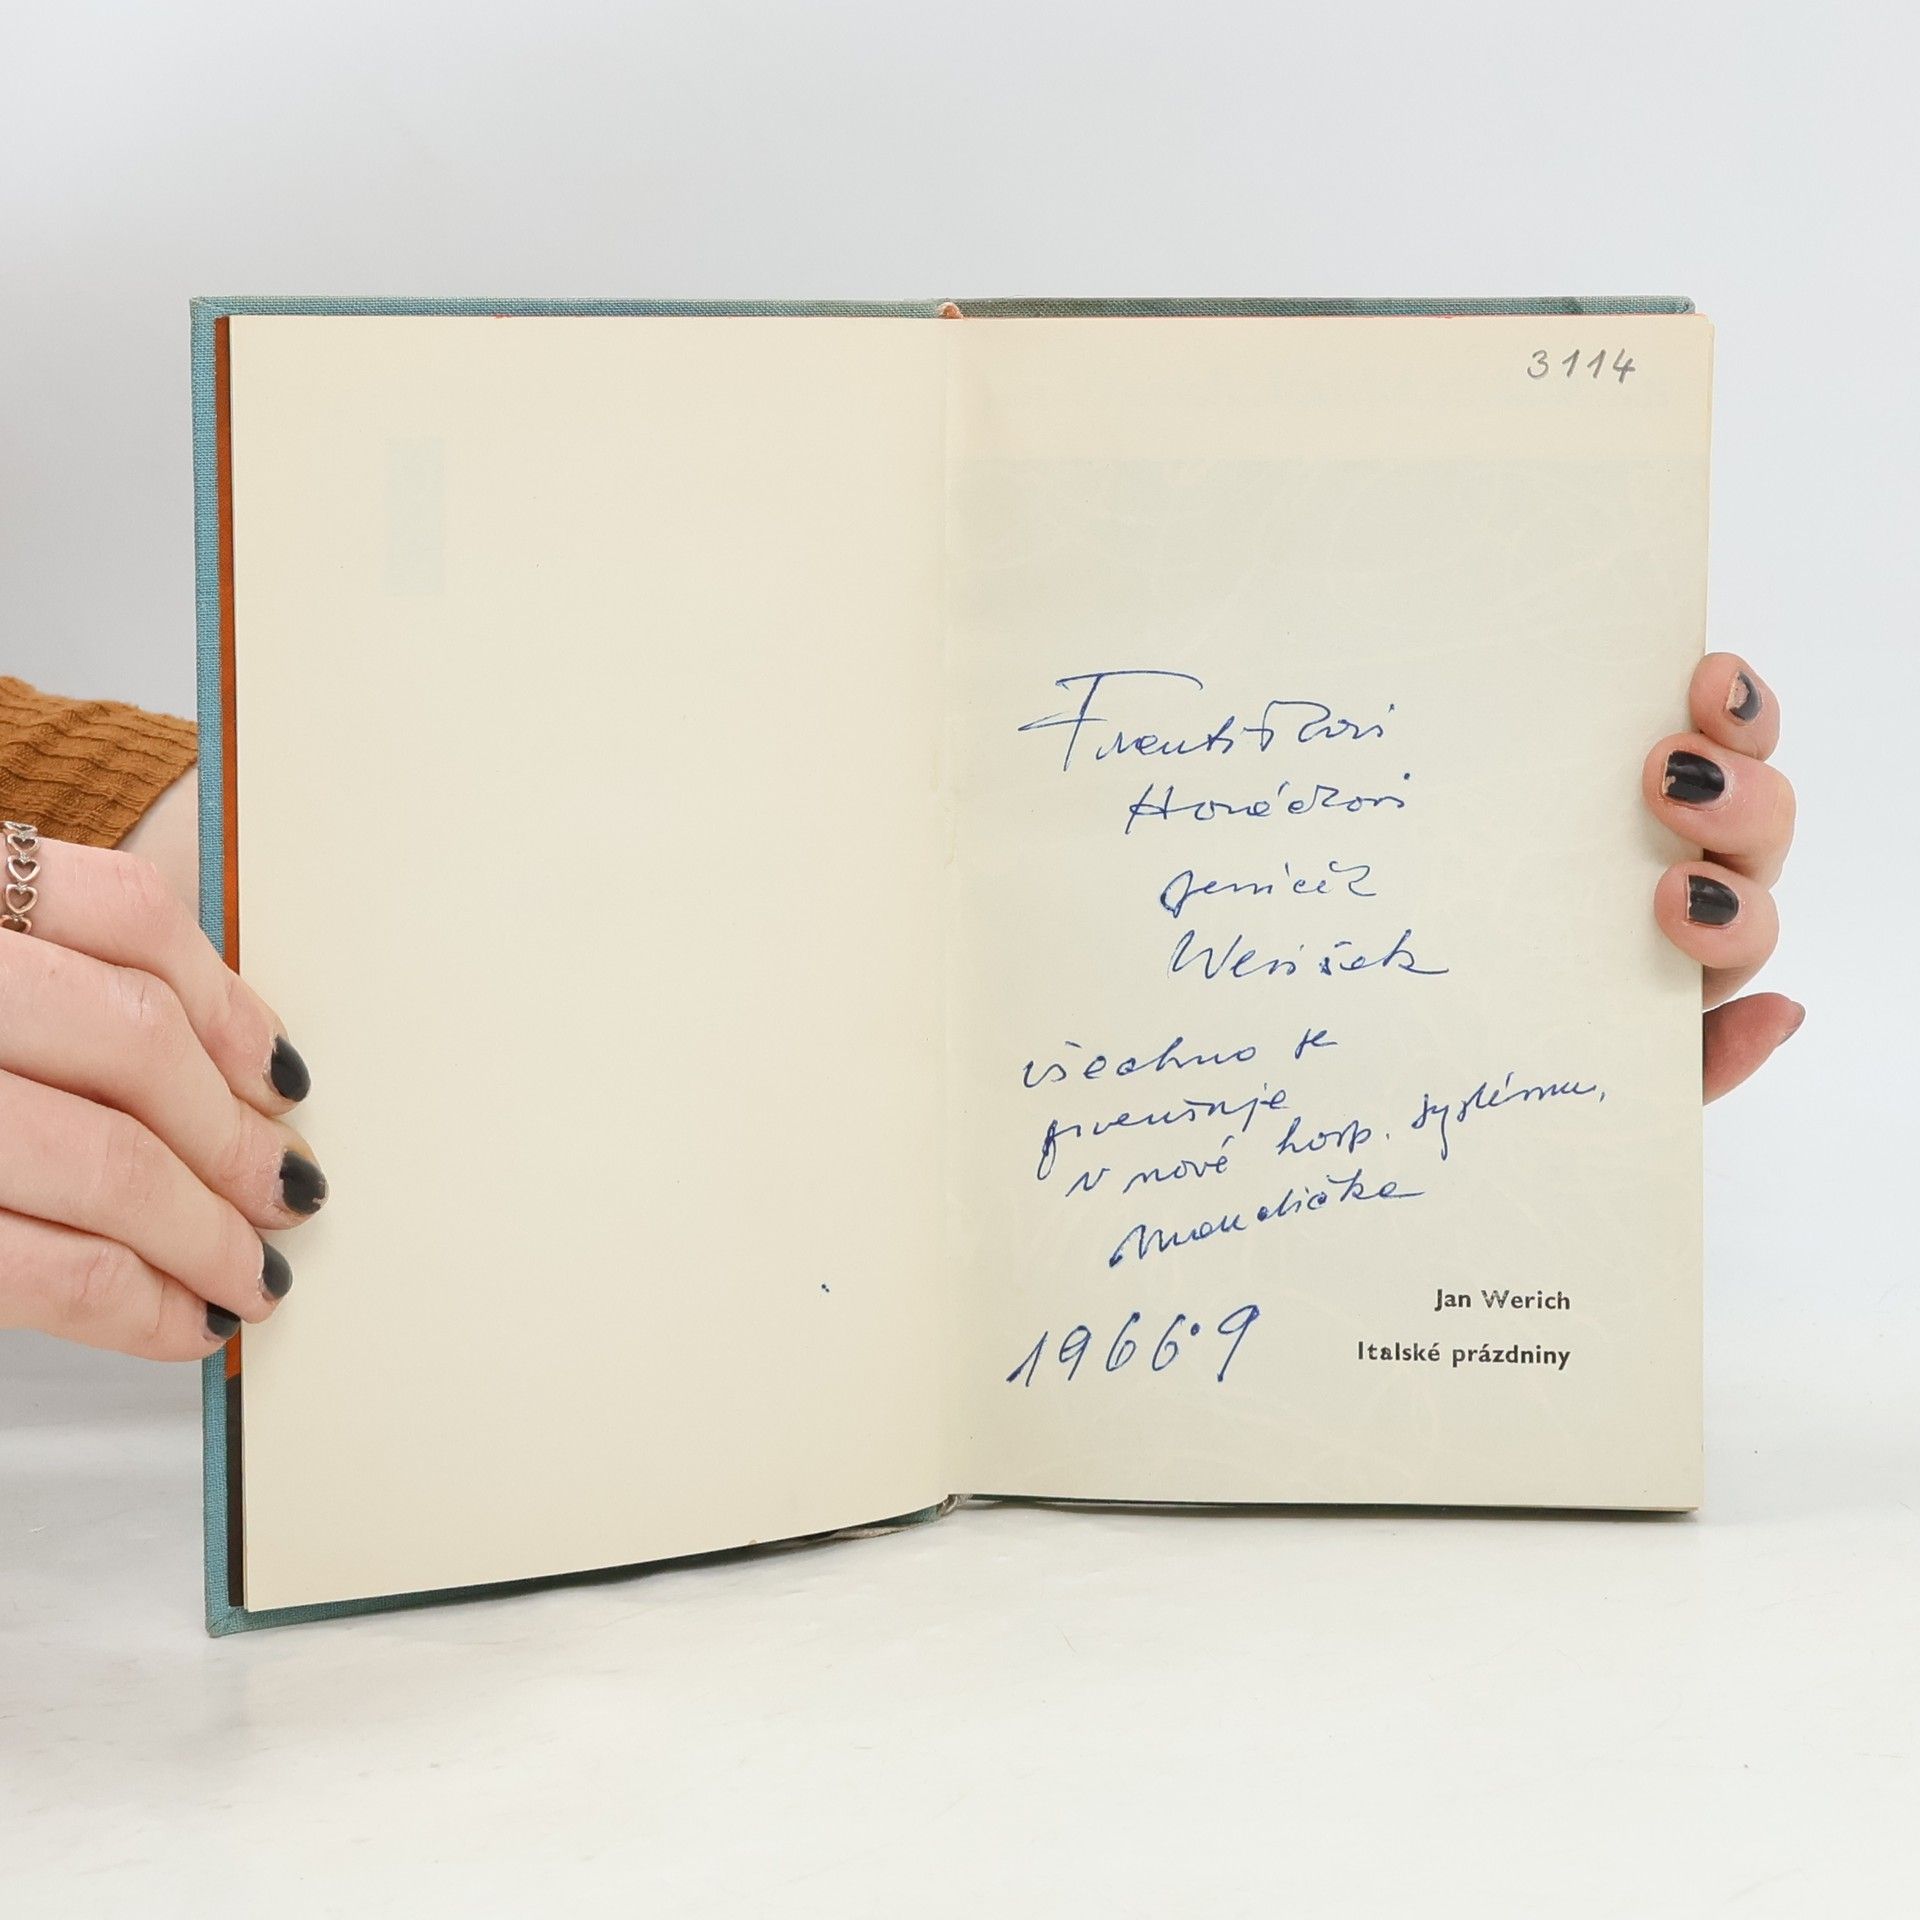 3114
Františkovi
Horáčkovi
Jeníček
Weríšek
všechno se
v nové hosp. systému,
1966·9
Jan Werich
Italské prázdniny